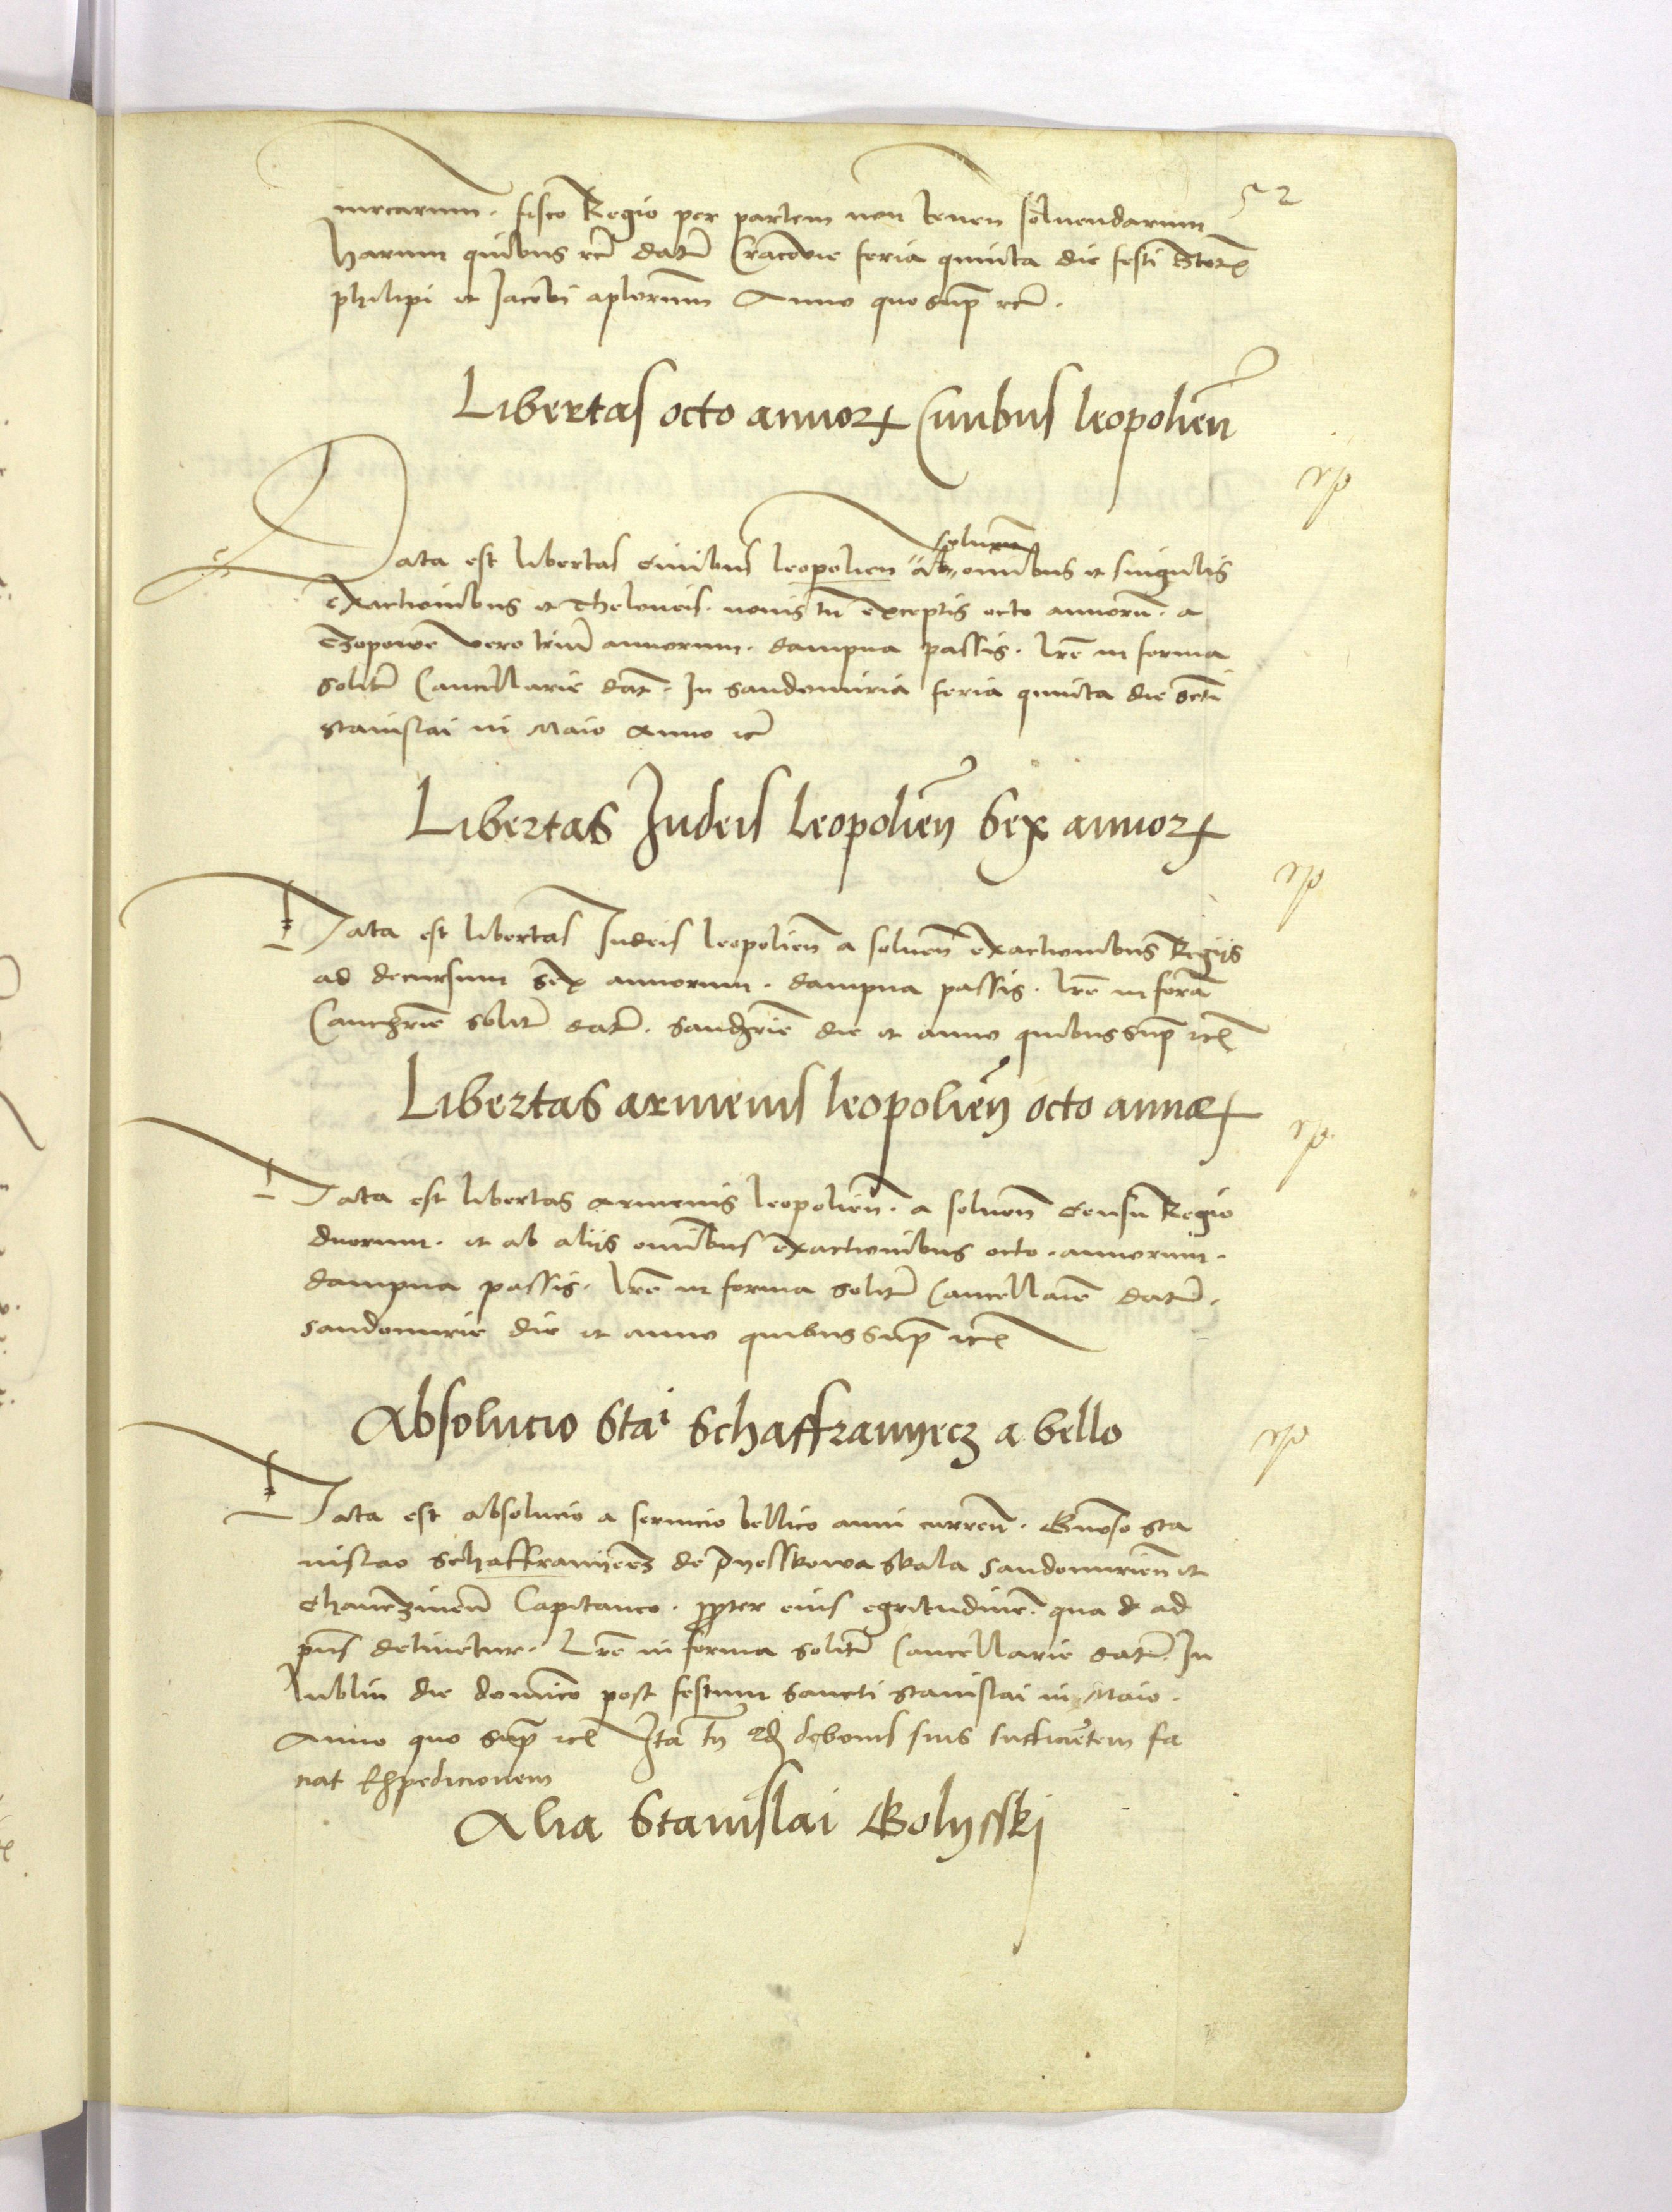 52
mrcarum. fisco Regio per partem non tenen soluendarum
harum quibus etc̃ datũ Cracovie feria quinta die festi Stor̃
philipi et Jacobi aplorum Anno quo sup̃ etc̃.
Libertas octo annorꝝ Civibus leopolieñ
rp
soluen̄
Data est libertas civibus leopolien ab omibus et singulis
exactionibus et theloneis. novis tñ exceptis octo annorũ. a
Czopowe vero triũ annorum. dampna passis. lr̃e in forma
solitũ Cancellarie dat̃. In Sandomiria feria quinta die Scti
Stanislai in Maio Anno etc̃
Libertas Judeis leopolieñ Sex annorꝝ
rp
Data est libertas Judeis leopolieñ a soluen̄ exactionibus Regiis
ad decursum Sex annorum. dampna passis. lr̃e in forã
Canclr̃ie solitũ datũ. Sandr̃ie die et anno quibus sup̃ etc̃
Libertas armenis leopolieñ octo annorꝝ
rp
Data est libertas armenis leopolieñ. a soluen̄ Censu Regio
duorum. et ab aliis omĩbus exactionibus octo. annorum.
dampna passis. lr̃e in forma solitũ Cancellarie datũ.
Sandomirie die et anno quibus sup̃ etc̃
Absolucio Staⁱ Schaffranyecz a bello
rp
Data est absolucio a servicio bellico anni curren̄. Gnoso Sta
nislao Schaffranyecz de Pyesskowa Skala Sandomirieñ et
Chanczineñ Capitaneo. ꝓpter eius egritudinẽ. qua d ad
pñs detinetur. Lr̃e in forma solitũ Cancellarie datũ. In
lublin die dominico post festum Sancti Stanislai in Maio.
Anno quo sup̃ etc̃ Ita tñ qd de bonis suis sufficiẽtem fa
ciat Expedicionem
Alia Stanislai Golysski